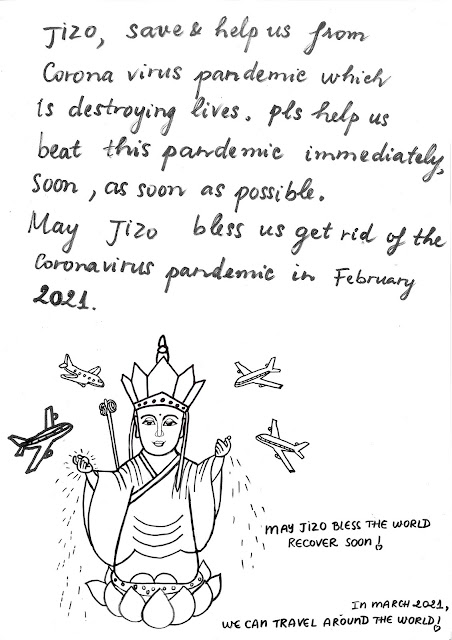 Jizo, save & help us from
Corona virus pandemic which
is destroying lives. Pls help us
beat this pandemic immediately,
Soon, as soon as possible.
May Jizo bless us get rid of the
Coronavirus pandemic in February
2021.
MAY JIZO BLESS THE WORLD
RECOVER SOON!
IN MARCH 2021,
WE CAN TRAVEL AROUND THE WORLD!